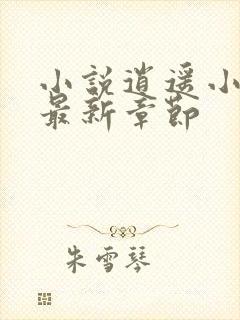 小說逍遥小
最新章節
朱雪琴